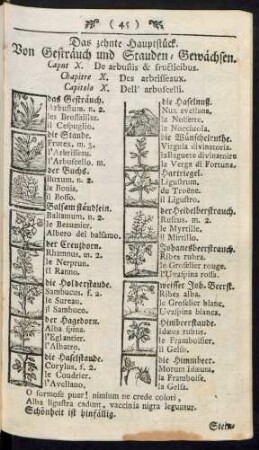 ( 45 )
Das zehnte Hauptstück.
Von Gesträuch und Stauden-Gewächsen.
Caput X. De arbustis & fructicibus.
Chapitre X. Des arbrisseaux.
Capitolo X. Dell' arbuscelli.
das Gesträuch.
Arbustum. n. 2.
les Brossailles.
il Cespuglio.
die Staude.
Frutex. m. 3.
l'Arbrisseau.
l'Arbuscello. m.
der Buchs.
Buxum. n. 2.
le Bouis.
il Bosso.
Balsamständlein.
Balsamum. n. 2.
le Beaumier.
Albero del balsamo.
der Creuzdorn.
Rhamnus. m. 2.
le Nerprun.
il Ranno.
die Holderstaude.
Sambucus. f. 2.
le Sureau.
il Sambuco.
der Hagedorn.
Alba spina.
l'Eglantier.
l'Albatro.
die Haselstaude.
Corylus. f. 2.
le Coudrier.
l'Avellano.
die Haselnuß.
Nux avellana.
la Noisette.
la Nocciuola.
die Wünschelruthe.
Virgula divinatoria.
la Verga di Fortuna.
Hartriegel.
Ligustrum.
du Troëne.
il Ligustro.
der Heidelberstrauch.
Ruscus. m. 2.
le Myrtille.
il Mirtillo.
Johannesbeerstrauch.
Ribes rubra.
le Groselier rouge.
l'Uvaspina rossa.
weisser Joh. Beerst.
Ribes alba.
le Groselier blanc.
Uvaspina bianca.
Himbeerstaude.
Idæus rubus.
le Framboisier.
il Gelso.
die Himmbeer.
Morum Idæum.
la Framboise.
la Gelsa.
O formose puer! nimium ne crede colori,
Alba ligustra cadunt, vaccinia nigra leguntur.
Schönheit ist hinfällig.
Stein-